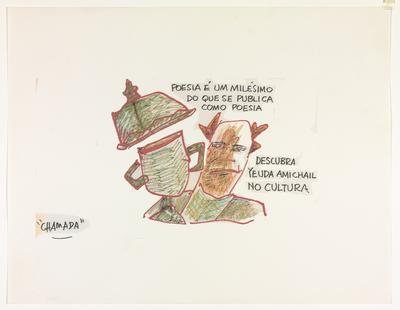 POESIA É UM MILÉSIMO
DO QUE SE PUBLICA
COMO POESIA
DESCUBRA
YEUDA AMICHAIL
NO CULTURA
"CHAMADA"